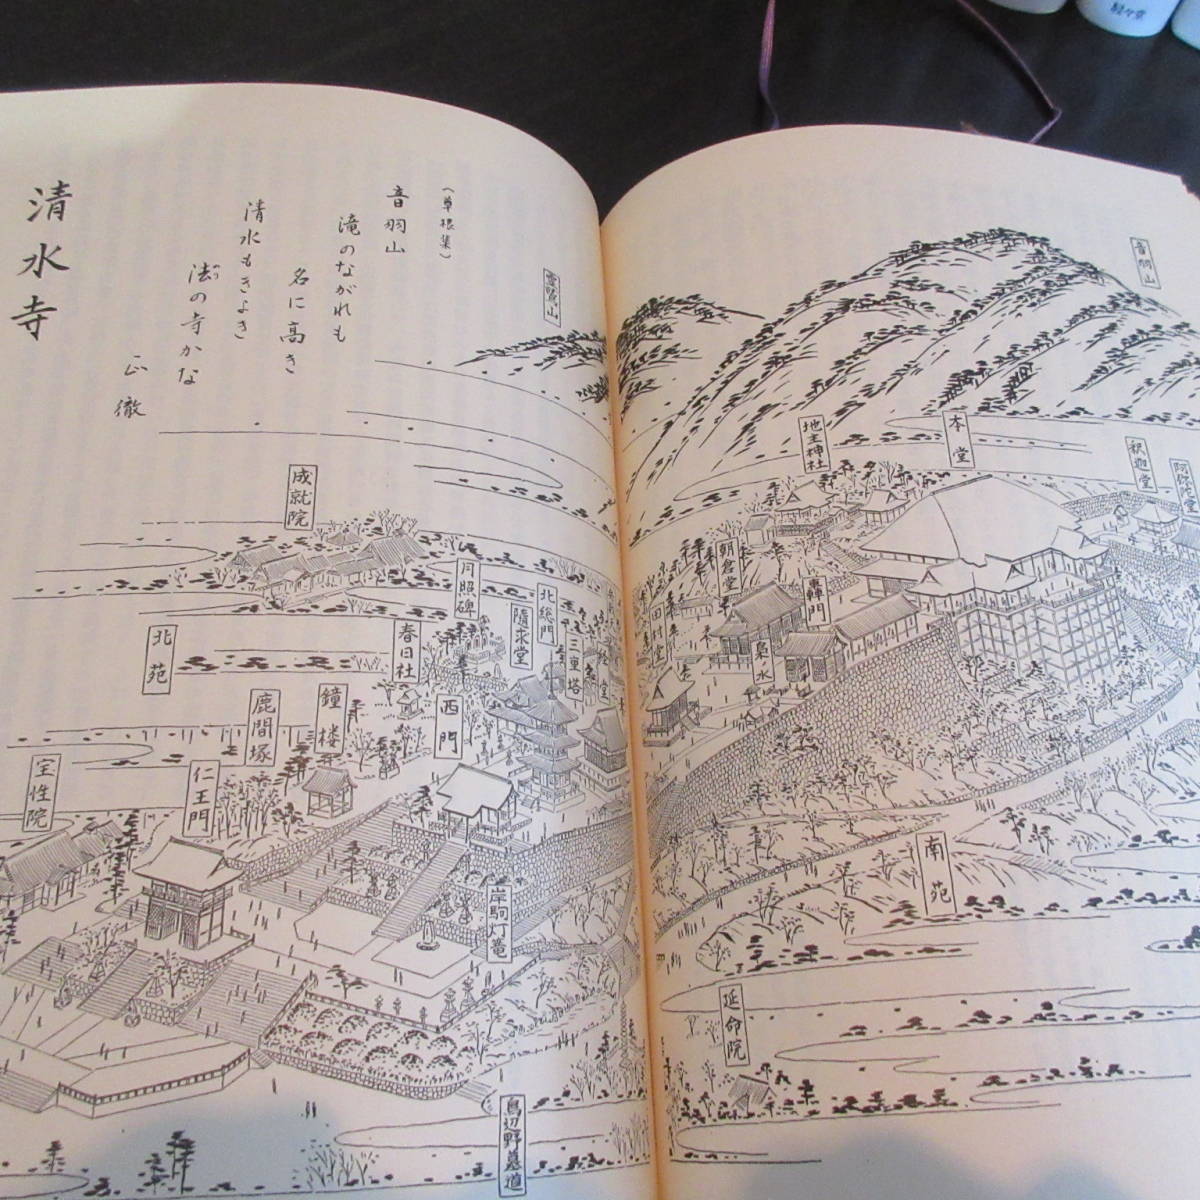 駸々堂
音羽山
阿弥陀堂
釈迦堂
本堂
地主神社
轟門
朝倉堂
梟ノ水
田村堂
南苑
延命院
霊鷲山
(草根集)
音羽山
滝のながれも
名に高き
清水もきよき
法の寺かな
正徹
清水寺
成就院
月照碑
北総門
隨求堂
三重塔
春日社
西門
北苑
鐘楼
鹿間塚
仁王門
宝性院
岸駒灯篭
鳥辺野墓道